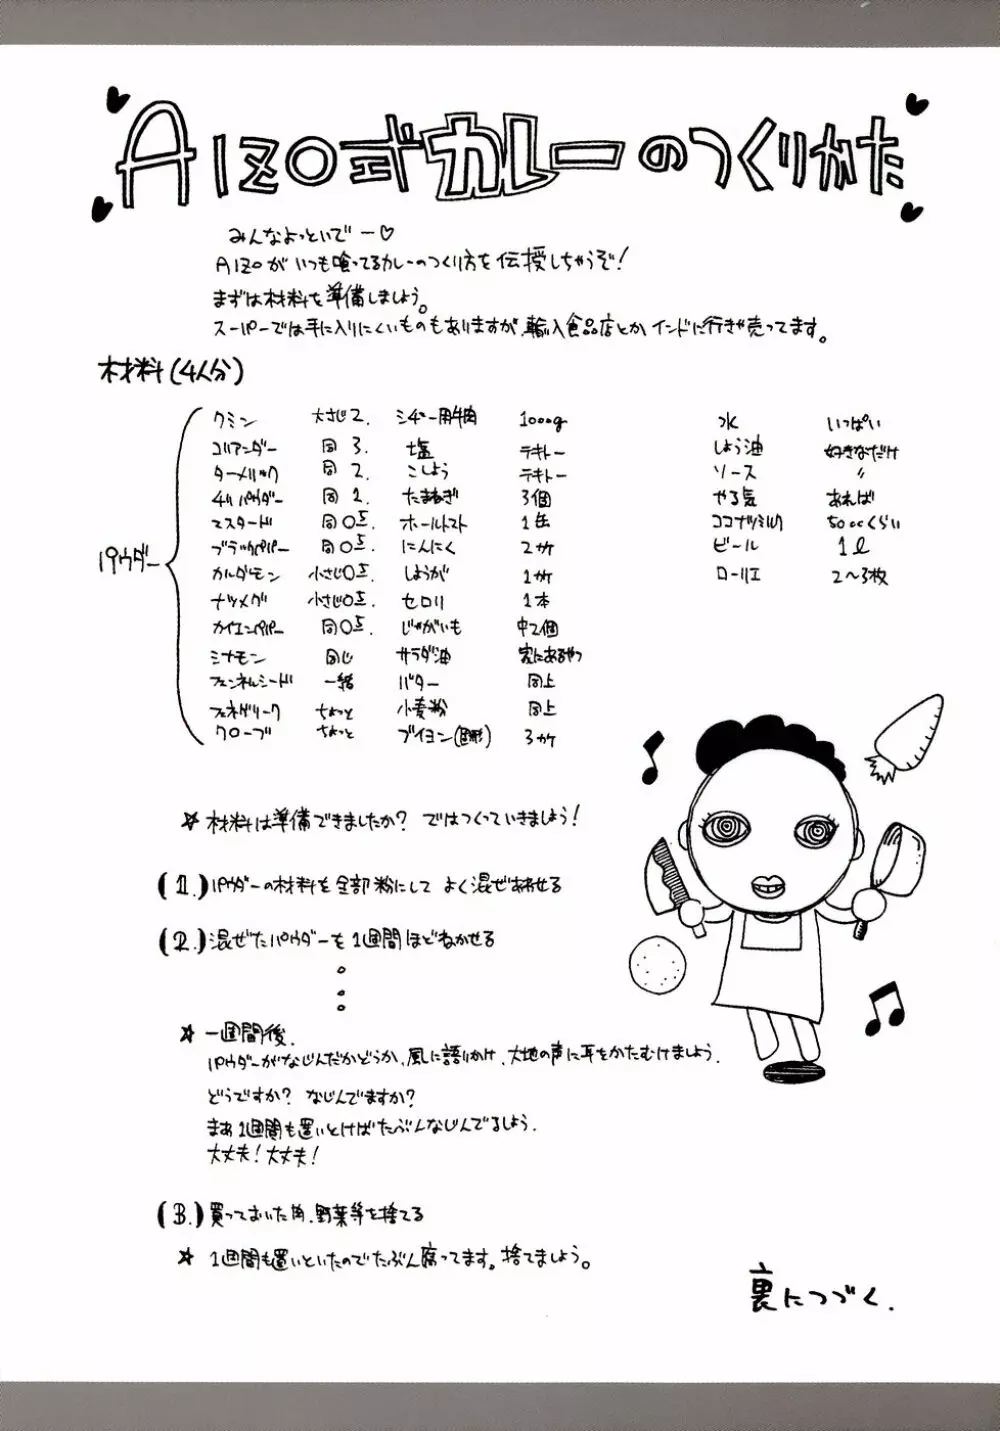 AIZO式カレーのつくりかた
みんなよっといでー♡
AIZOがいつも喰ってるカレーのつくり方を伝授しちゃうぞ!
まずは材料を準備しましょう。
スーパーでは手に入りにくいものもありますが、輸入食品店とかインドに行きゃ売ってます。
材料(4人分)
パウダー
クミン 大さじ2.
コリアンダー 同3.
ターメリック 同2.
チリパウダー 同1.
マスタード 同0.5.
ブラックペパー 同0.5.
カルダモン 小さじ0.5.
ナツメグ 小さじ0.5.
カイエンペパー 同0.5.
シナモン 同じ
フェンネルシード 一緒
フェネグリーク ちょっと
クローブ ちょっと
シチュー用牛肉 1000g
塩 テキトー
こしょう テキトー
たまねぎ 3個
ホールトマト 1缶
にんにく 2ケ
しょうが 1ケ
セロリ 1本
じゃがいも 中2個
サラダ油 家にあるやつ
バター 同上
小麦粉 同上
ブイヨン(固形) 3ケ
水 いっぱい
しょう油 好きなだけ
ソース 〃
やる気 あれば
ココナツミルク 50ccくらい
ビール 1ℓ
ローリエ 2〜3枚
☆材料は準備できましたか? ではつくっていきましょう!
(1.)パウダーの材料を全部粉にして よく混ぜあわせる
(2.)混ぜたパウダーを1週間ほどねかせる
☆一週間後.
パウダーがなじんだかどうか、風に語りかけ、大地の声に耳をかたむけましょう.
どうですか? なじんでますか?
まぁ1週間も置いとけばたぶんなじんでるでしょう.
大丈夫!大丈夫!
(3.)買っておいた肉、野菜等を捨てる
☆1週間も置いといたのでたぶん腐ってます。捨てましょう。
裏につづく.